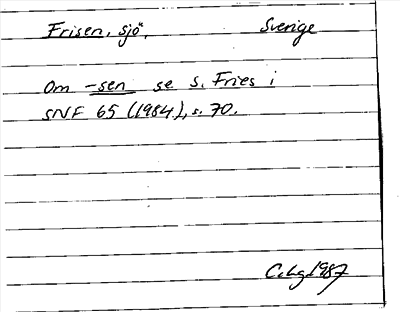 Frisen, sjö, Sverige
Om -sen se S. Fries i
SNF 65 (1984), s. 70.
1987